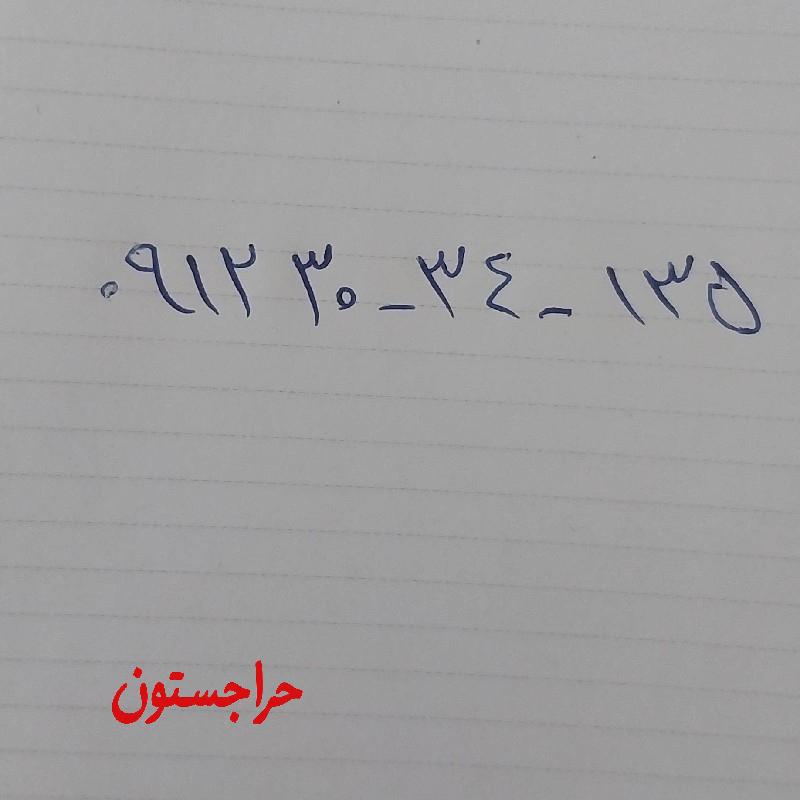 ۰۹۱۲ ۳۰-۳۴-۱۳۵
حراجستون